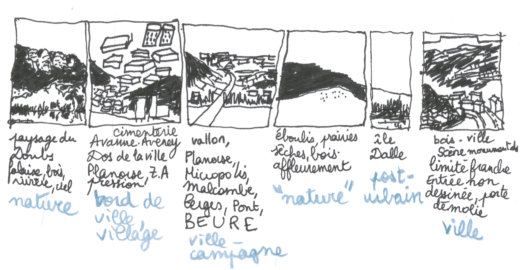 paysage du
Doubs
falaise, bois,
rivière, ciel
nature
cimenterie
Avanne-Aveney
Dos de la ville
Planoise, Z.A
pression,
bord de
ville,
village
vallon,
Planoise,
Micropolis,
Malcombe,
Berges, Pont,
BEURE
ville-
campagne
éboulis, prairies
sèches, bois.
affleurement
"nature"
2 le
Dalle
post-
urbain
bois - ville
Scène monumentale
limite franche
Entrée non
dessinée, porte
démolie
ville